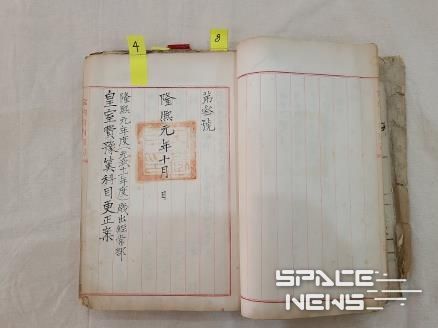 4
8
第參號
隆熙元年十月 日
隆熙元年度(光武十一年度)歲出經常部
皇室費豫算科目更正案
SPACE
NEWS